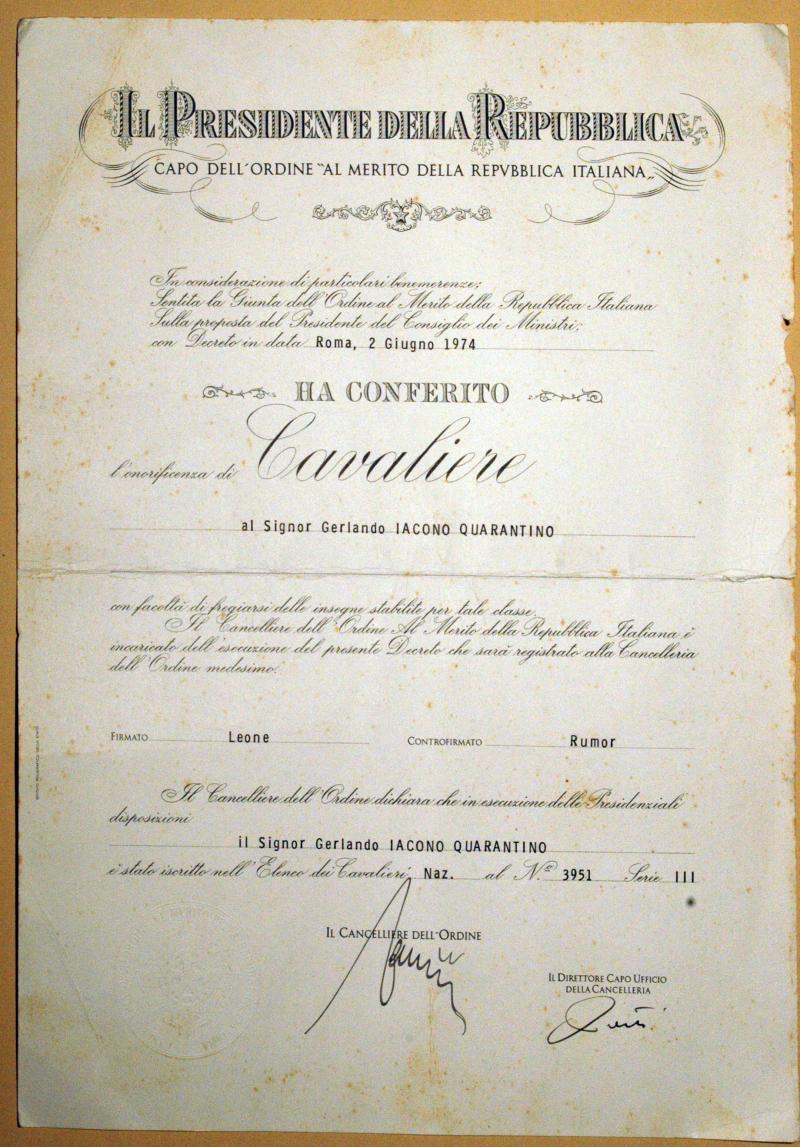 IL PRESIDENTE DELLA REPUBBLICA
CAPO DELL'ORDINE "AL MERITO DELLA REPVBBLICA ITALIANA„
In considerazione di particolari benemerenze;
Sentita la Giunta dell'Ordine al Merito della Repubblica Italiana
Sulla proposta del Presidente del Consiglio dei Ministri;
con Decreto in data Roma, 2 Giugno 1974
HA CONFERITO
l'onorificenza di Cavaliere
al Signor Gerlando IACONO QUARANTINO
con facoltà di fregiarsi delle insegne stabilite per tale classe.
Il Cancelliere dell'Ordine Al Merito della Repubblica Italiana è
incaricato dell'esecuzione del presente Decreto che sarà registrato alla Cancelleria
dell'Ordine medesimo.
FIRMATO Leone CONTROFIRMATO Rumor
Il Cancelliere dell'Ordine dichiara che in esecuzione delle Presidenziali
disposizioni
il Signor Gerlando IACONO QUARANTINO
è stato iscritto nell'Elenco dei Cavalieri Naz. al N.º 3951 Serie III
IL CANCELLIERE DELL'ORDINE
IL DIRETTORE CAPO UFFICIO
DELLA CANCELLERIA